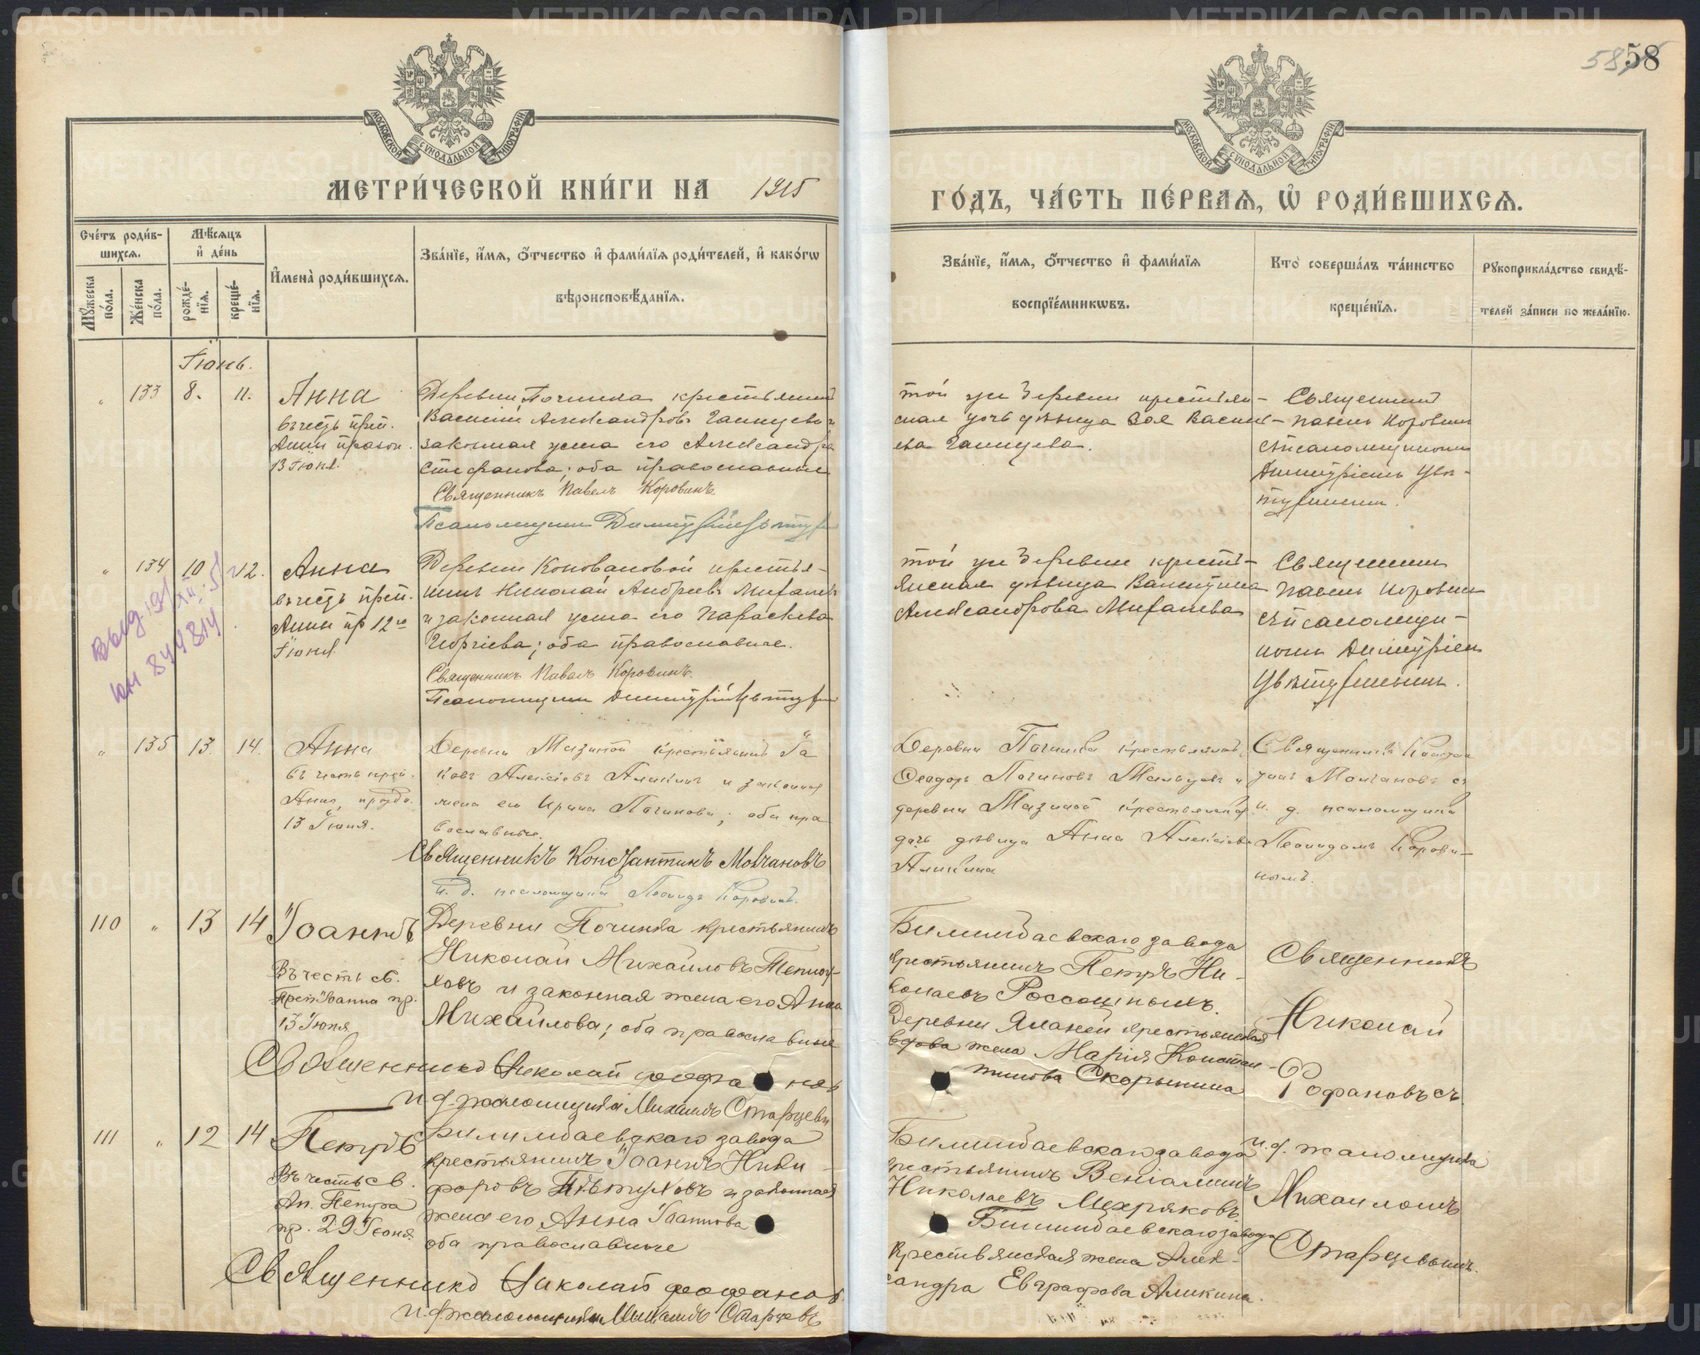 58
58
МЕТРИ́ЧЕСКОЙ КНИ́ГИ НА 1915
ГО́ДЪ, ЧА́СТЬ ПЕ́РВАѦ, Ѽ РОДИ́ВШИХСѦ.
МОСКОВСКОЙ СѴНОДАЛЬНОЙ ТИПОГРАФІИ
МОСКОВСКОЙ СѴНОДАЛЬНОЙ ТИПОГРАФІИ
Сче́тъ роди́вшихсѧ.
Мꙋ́жеска по́ла.
Же́нска по́ла.
Мѣ́сѧцъ и҆ де́нь
рожде́нїѧ.
креще́нїѧ.
И҆мена̀ роди́вшихсѧ.
Зва́нїе, и҆́мѧ, ѻ҆́тчество и҆ фами́лїѧ роди́телей, и҆ како́гѡ
вѣроисповѣ́данїѧ.
Зва́нїе, и҆́мѧ, ѻ҆́тчество и҆ фами́лїѧ
воспрїе́мникѡвъ.
Кто̀ соверша́лъ та́инство
креще́нїѧ.
Рꙋкоприкла́дство свидѣ́-
телей за́писи по жела́нїю.
Іюнь.
" 133 8. 11. Анна
въ честь преп.
Анны правон.
13 Іюня.
Деревни Починка крестьянинъ
Василій Александровъ Галицевъ и
законная жена его Александра
Стефанова; оба православные
Священникъ Павелъ Коровинъ.
Псаломщикъ Димитрій
той же деревни крестьян-
ская дочь дѣвица Зоя Василь-
ева Галицева.
Священникъ
Павелъ Коровинъ
съ псаломщикомъ
Димитріемъ Цвѣ-
" 134 10 12. Анна
въ честь преп.
Анны пр 12го
Іюня
Деревни Коноваловой крестья-
нинъ Николай Андреевъ Михалевъ
и законная жена его Параскева
Георгіева; оба православные.
Священникъ Павелъ Коровинъ.
Псаломщикъ Димитрій
той же деревни кресть-
янская дѣвица Валентина
Александрова Михалева
Священникъ
Павелъ Коровинъ
съ псаломщи-
комъ Димитріемъ
" 135 13. 14. Анна
въ честь преп.
Анны, праздн.
13 Іюня.
Деревни Мазиной крестьянинъ Іа
ковъ Алексіевъ Аликинъ и законная
жена его Ирина Логинова; оба пра
вославные.
Священникъ Константинъ Молчановъ
и. д. псаломщика Леонидъ Коровинъ.
Деревни Починка крестьянинъ
Ѳеодоръ Логиновъ и
деревни Мазиной крестьянская
дочь дѣвица Анна Алексіева
Аликина
Священникъ Констан
тинъ Молчановъ съ
и. д. псаломщика
Леонидомъ Корови-
нымъ.
110 " 13 14 Іоаннъ
Въ честь св.
Преп. Іоанна пр.
13 Іюня
Деревни Починка крестьянинъ
Николай Михайловъ Теплоу-
ховъ и законная жена его Анна
Михайлова; оба православные
Священникъ Николай
и д псаломщика Михаилъ Старцевъ
Билимбаевскаго завода
крестьянинъ Петръ Ни-
колаевъ Россошныхъ.
Деревни Яланей крестьянская
вдова жена Марія Констан-
тинова Скорынина
Священникъ
Николай
Рофановъ съ
111 " 12 14 Петръ
Въ честь св.
Ап. Петра
пр. 29 Іюня.
Билимбаевскаго завода
крестьянинъ Іоаннъ Ники-
форовъ Пѣтуховъ и законная
жена его Анна Іоаннова
оба православные
Священникъ Николай
и д псаломщика Михаилъ Старцевъ
Билимбаевскаго завода
крестьянинъ Веніаминъ
Николаевъ Мехряковъ
Билимбаевскаго завода
Крестьянская жена Алек-
сандра Евграфова Аликина.
и д. псаломщика
Михаиломъ
Старцевымъ.